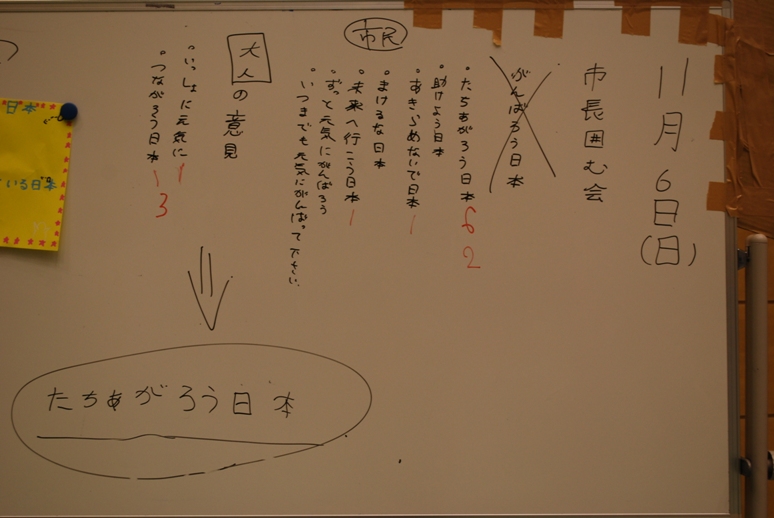 11月6日(日)
市長囲む会
がんばろう日本
市民
。たちあがろう日本 6 2
。助けよう日本
。あきらめないで日本 1
。まけるな日本
。未来へ行こう日本 1
。ずっと元気にがんばろう
。いつまでも元気にがんばって下さい。
大人の意見
。いっしょに元気に 1
。つながろう日本 1 3
たちあがろう日本
日本
いる日本